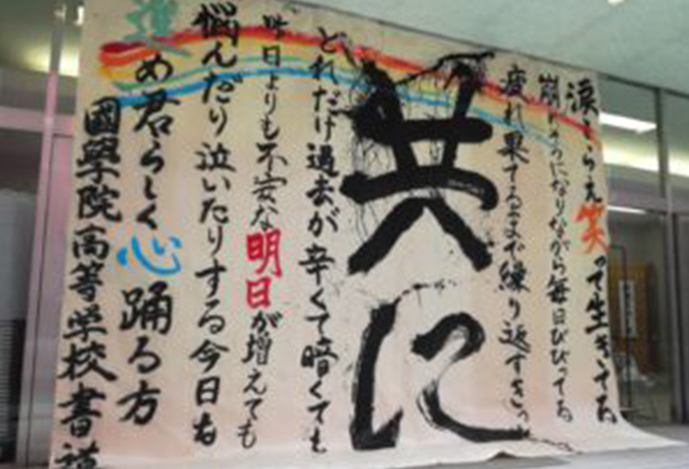 涙こらえ笑って生きてる
崩れそうになりながら毎日びびってる
疲れ果てるまで繰り返す
共に
どれだけ過去が辛くて暗くても
昨日よりも不安な明日が増えても
悩んだり泣いたりする今日も
進め君らしく心踊る方
國學院高等学校書道